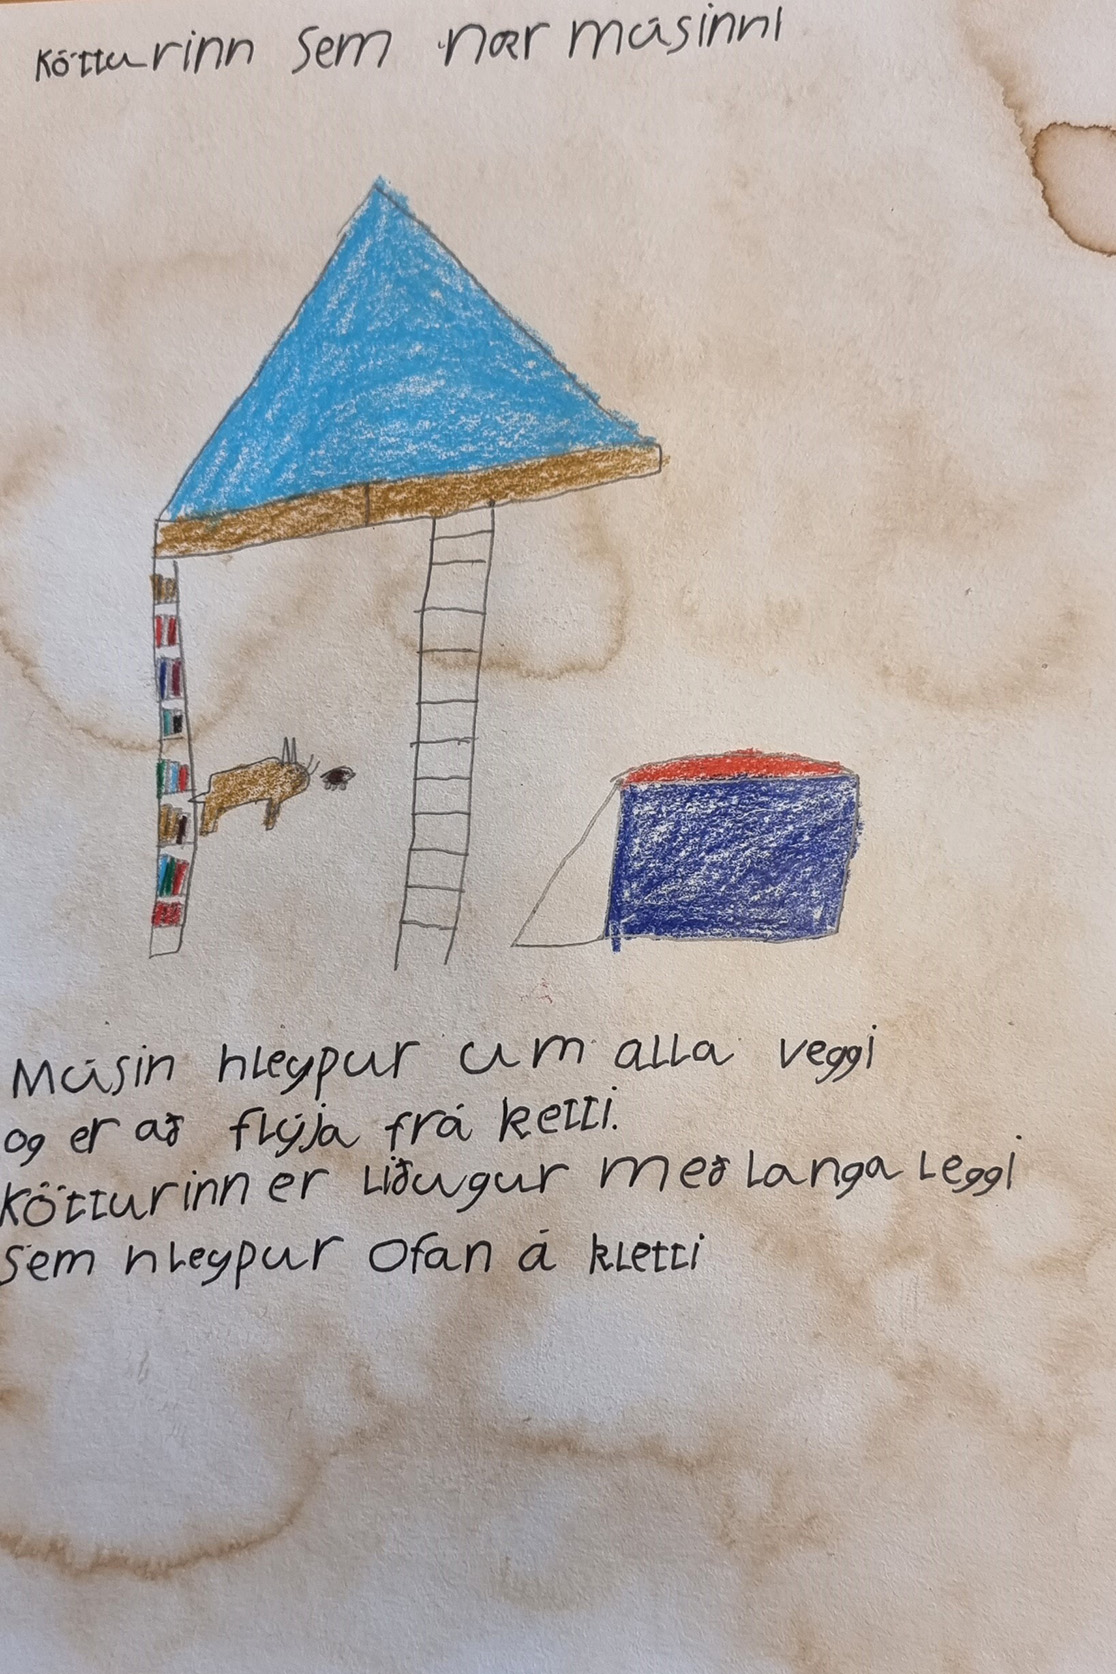 Kötturinn sem nær músinni
Músin hleypur um alla veggi
og er að flýja frá ketti.
Kötturinn er liðugur með langa leggi
sem hleypur ofan á kletti